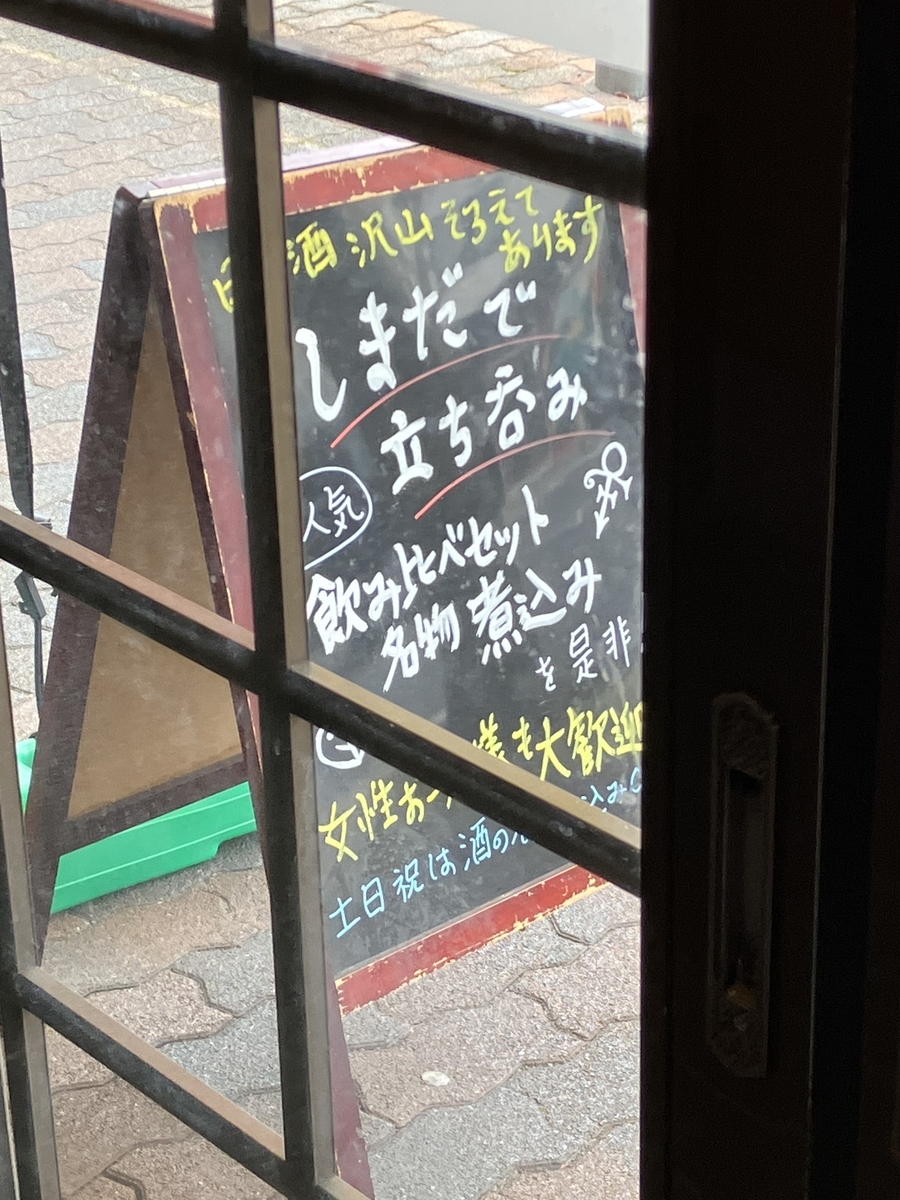 酒 沢山 そろえて
あります
しまだで
立ち呑み
人気
飲み比べセット
名物 煮込み
を是非
様も大歓迎
女性お一人
土日祝は酒の
込み